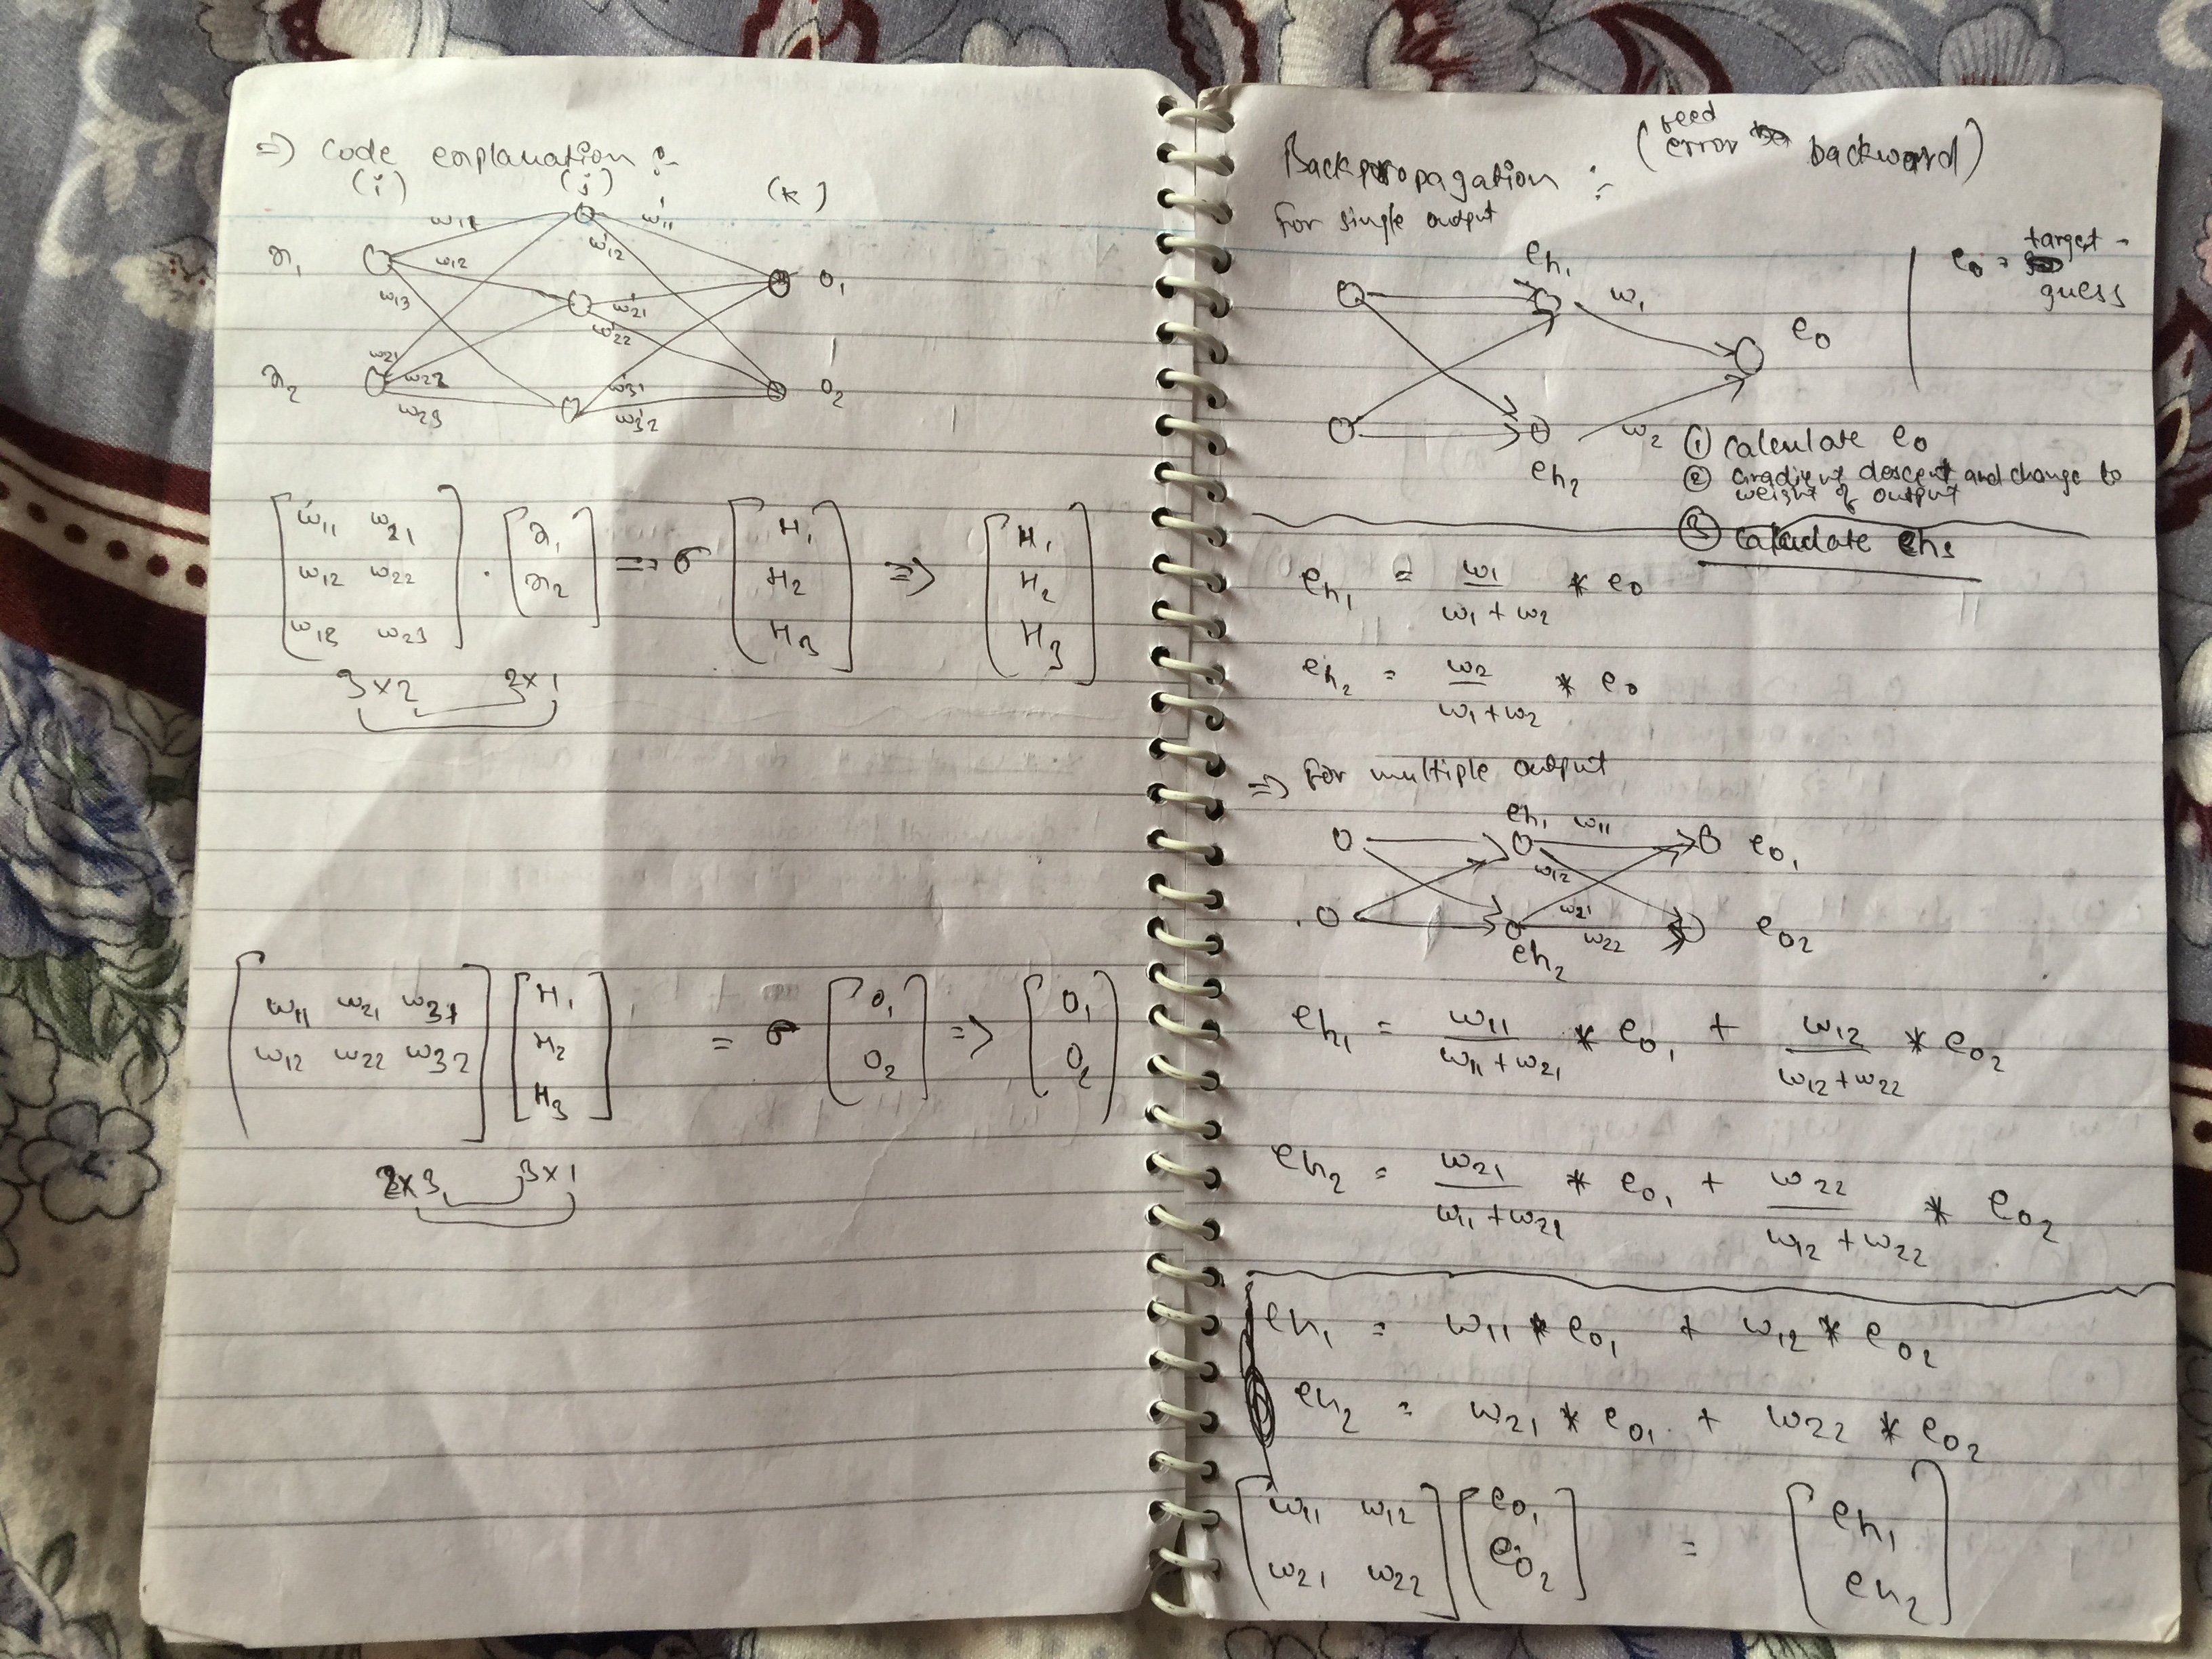 => Code explanation :-
(i) (j) (k)
w11 w'11
w'12
x1 w12 O1
w13 w'21
w'22
w21
x2 w22 w'31 O2
w23 w'32
[w11 w21] . [x1] => σ [H1] => [H1]
[w12 w22] [x2] [H2] [H2]
[w13 w23] [H3] [H3]
3x2 2x1
[w11 w21 w31] [H1] = σ [O1] => [O1]
[w12 w22 w32] [H2] [O2] [O2]
[H3]
2x3 3x1
Backpropagation :- (feed error backward)
For single output
eh1 w1 eo
eo = target - guess
eh2 w2
① Calculate eo
② Gradient descent and change to
weight of output
③ Calculate ehs
eh1 = w1 / w1 + w2 * eo
eh2 = w2 / w1 + w2 * eo
=> For multiple output
eh1 w11 eo1
w12
w21
w22 eo2
eh2
eh1 = w11 / w11 + w21 * eo1 + w12 / w12 + w22 * eo2
eh2 = w21 / w11 + w21 * eo1 + w22 / w12 + w22 * eo2
eh1 = w11 * eo1 + w12 * eo2
eh2 = w21 * eo1 + w22 * eo2
[w11 w12] [eo1] = [eh1]
[w21 w22] [eo2] [eh2]